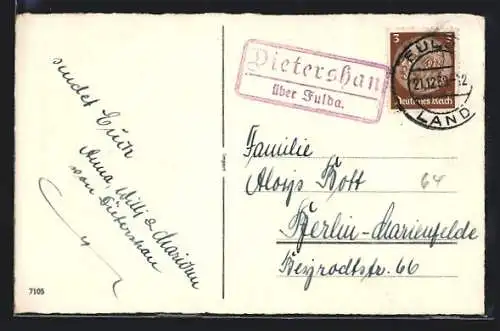 sendet Euch
Anna, Willi &
von Dietershan
7105
Dietershan
über Fulda.
3
Deutsches Reich
FULDA
21.12.39
LAND
Familie
Aloys Bott
64
Berlin-Marienfelde
Beyrodtstr. 66